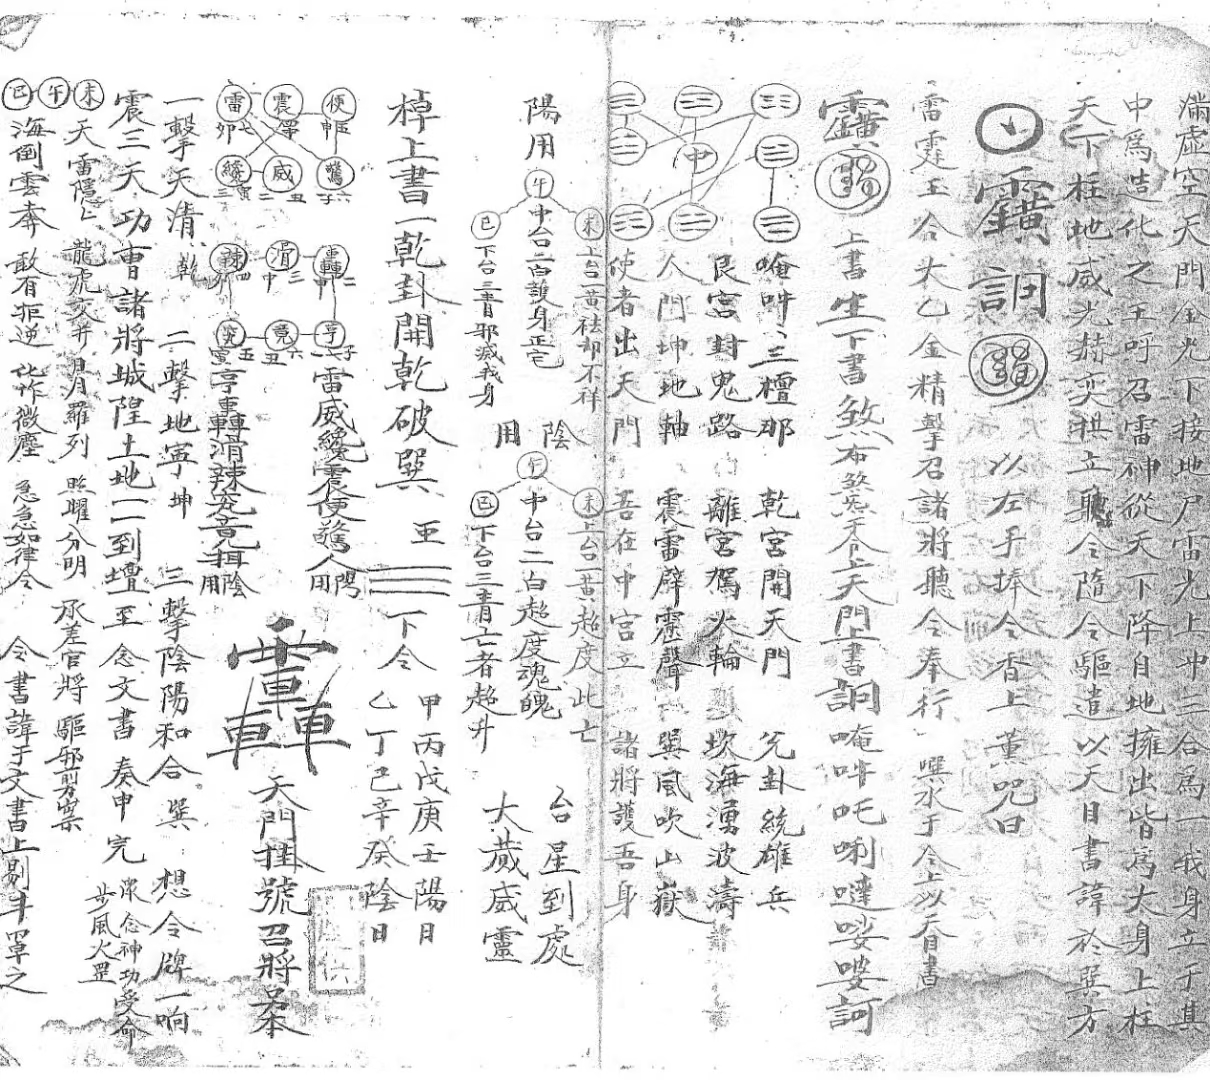 滿虛空天門金光下接地户雷光上冲三合爲一我身立于其
中爲造化之主呼召雷神從天下降自地擁出皆爲大身上柱
天下柱地威光赫奕拱立聽令隨令驅遣以天目書諱於巽方
以左手捧令香上薰咒曰
雷霆王令太乙金精擊召諸將聽令奉行
噀水于令上以天目書
上書生下書煞布煞炁令上天門上書
唵吽吒唎噠娑婆訶
唵吽吽三檀那 乾宮開天門 兌卦統雄兵
艮宮封鬼路 離宮駕火輪 坎海湧波濤
人門坤地軸 震雷霹靂聲 巽風吹山嶽
使者出天門 吾在中宮立 諸將護吾身
中
陽用
未 上台一黃祛却不祥
午 中台二白護身正宅
巳 下台三青邪滅我身
陰用
未 上台一黃超度此亡
午 中台二白超度魂魄
巳 下台三青亡者超升
台星到處
大藏威靈
棹上書一乾卦開乾破巽
下令
甲丙戊庚壬陽日
乙丁己辛癸陰日
便 震 雷
驚 威 纔
轟 滑 辣
亨 竟 究
雷威纔震便驚人
陽用
亨轟滑辣究竟輯
陰用
天門挂號召將某
一擊天清 乾 二擊地寧 坤 三擊陰陽和合 巽 想令牌一响
震三天功曹諸將城隍土地一一到壇至念文書奏申完
深念神功受命
步風火罡
未 午 巳
天雷隱隱 龍虎交并 日月羅列 照曜分明 承差官將 驅邪剪
海倒雲奔 敢有拒逆 化作微塵 急急如律令 令書諱于文書上剔斗罩之